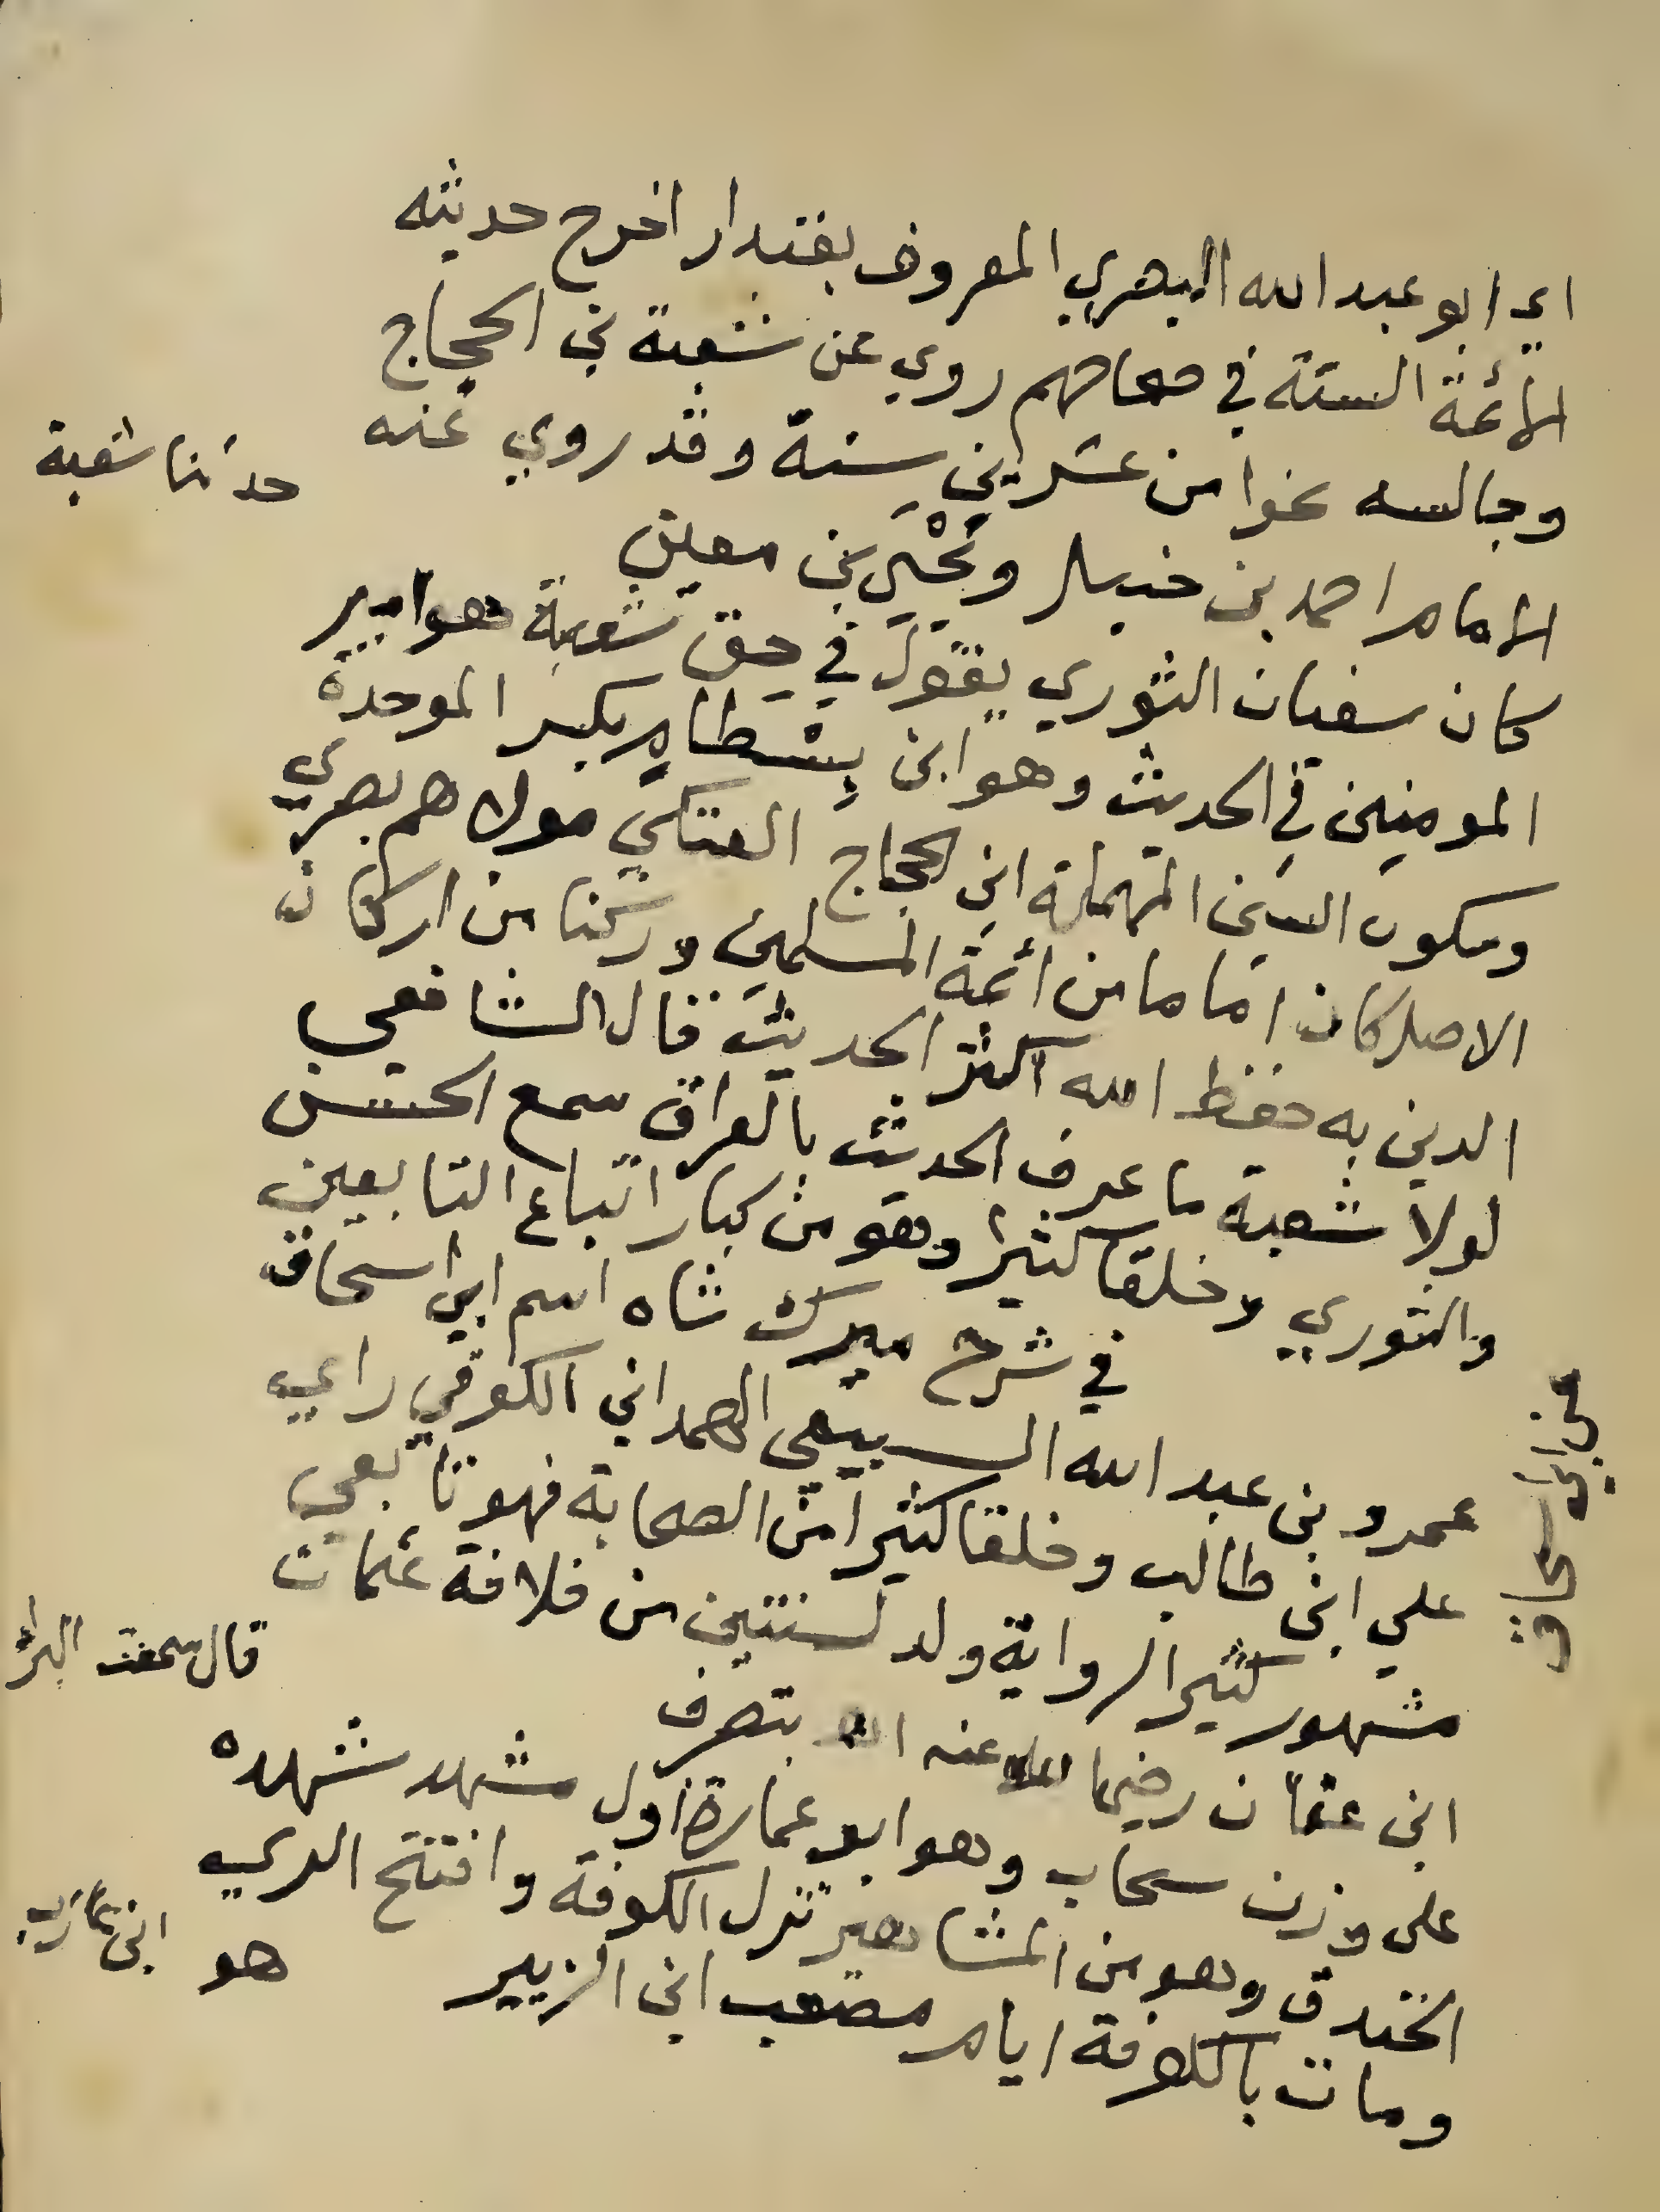 اي ابو عبد الله البصري المعروف بغندار اخرج حديثه
الائمة الستة في صحاحهم روي عن شعبة بن الحجاج
وجالسه نحوا من عشرين سنة وقد روي عنه
حدثنا شعبة
الامام احمد بن حنبل ويحيى بن معين
كان سفيان الثوري يقول في حق شعبة هو امير
المومنين في الحديث وهو ابن بسطام بكسر الموحدة
وسكون السين المهملة ابن الحجاج العتكي مولاهم بصري
الاصل كان اماما من ائمة المسلمين وركنا من اركان
الدين به حفظ الله اكثر الحديث قال الشافعي
لولا شعبة ما عرف الحديث بالعراق سمع الحسن
والثوري وخلقا كثيرا وهو من كبار اتباع التابعين
في شرح ميرك شاه اسم ابي اسحاق
عن ابي اسحاق
عمرو بن عبد الله السبيعي الهمداني الكوفي راي
علي ابن طالب وخلقا كثيرا من الصحابة فهو تابعي
مشهور كثير الرواية ولد لسنتين من خلافة عثمان
قال سمعت البرا
ابن عفان رضي الله عنه بتصرف
على وزن سحاب وهو ابو عمارة اول مشهد شهده
الخندق وهو من المشاهير نزل الكوفة وافتتح الري
ابن عازب
ومات بالكوفة ايام مصعب ابن الزبير هو